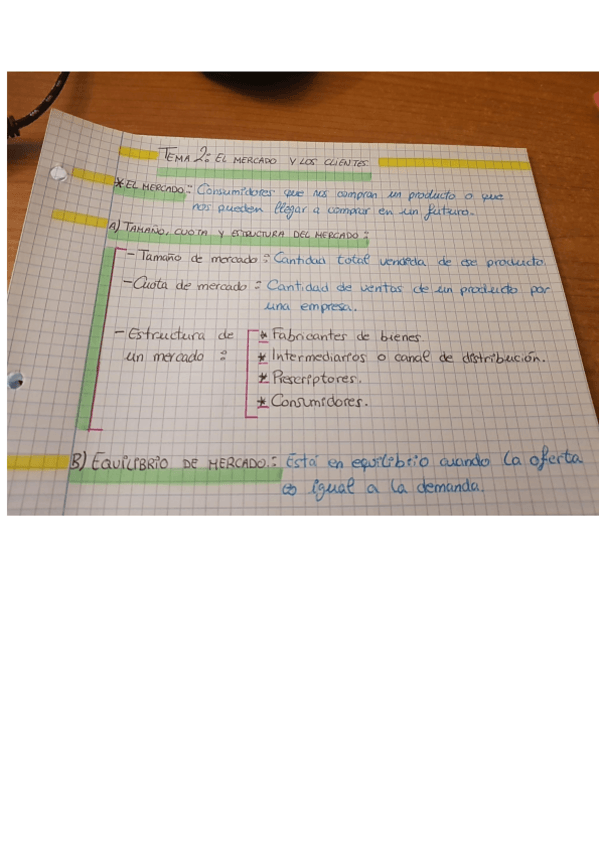 TEMA 2: EL MERCADO Y LOS CLIENTES
* EL MERCADO: Consumidores que nos compran un producto o que
nos pueden llegar a comprar en un futuro.
A) TAMAÑO, CUOTA Y ESTRUCTURA DEL MERCADO:
- Tamaño de mercado: Cantidad total vendida de ese producto.
- Cuota de mercado: Cantidad de ventas de un producto por
una empresa.
- Estructura de
un mercado:
* Fabricantes de bienes.
* Intermediarios o canal de distribución.
* Prescriptores.
* Consumidores.
B) EQUILIBRIO DE MERCADO.: Está en equilibrio cuando la oferta
es igual a la demanda.